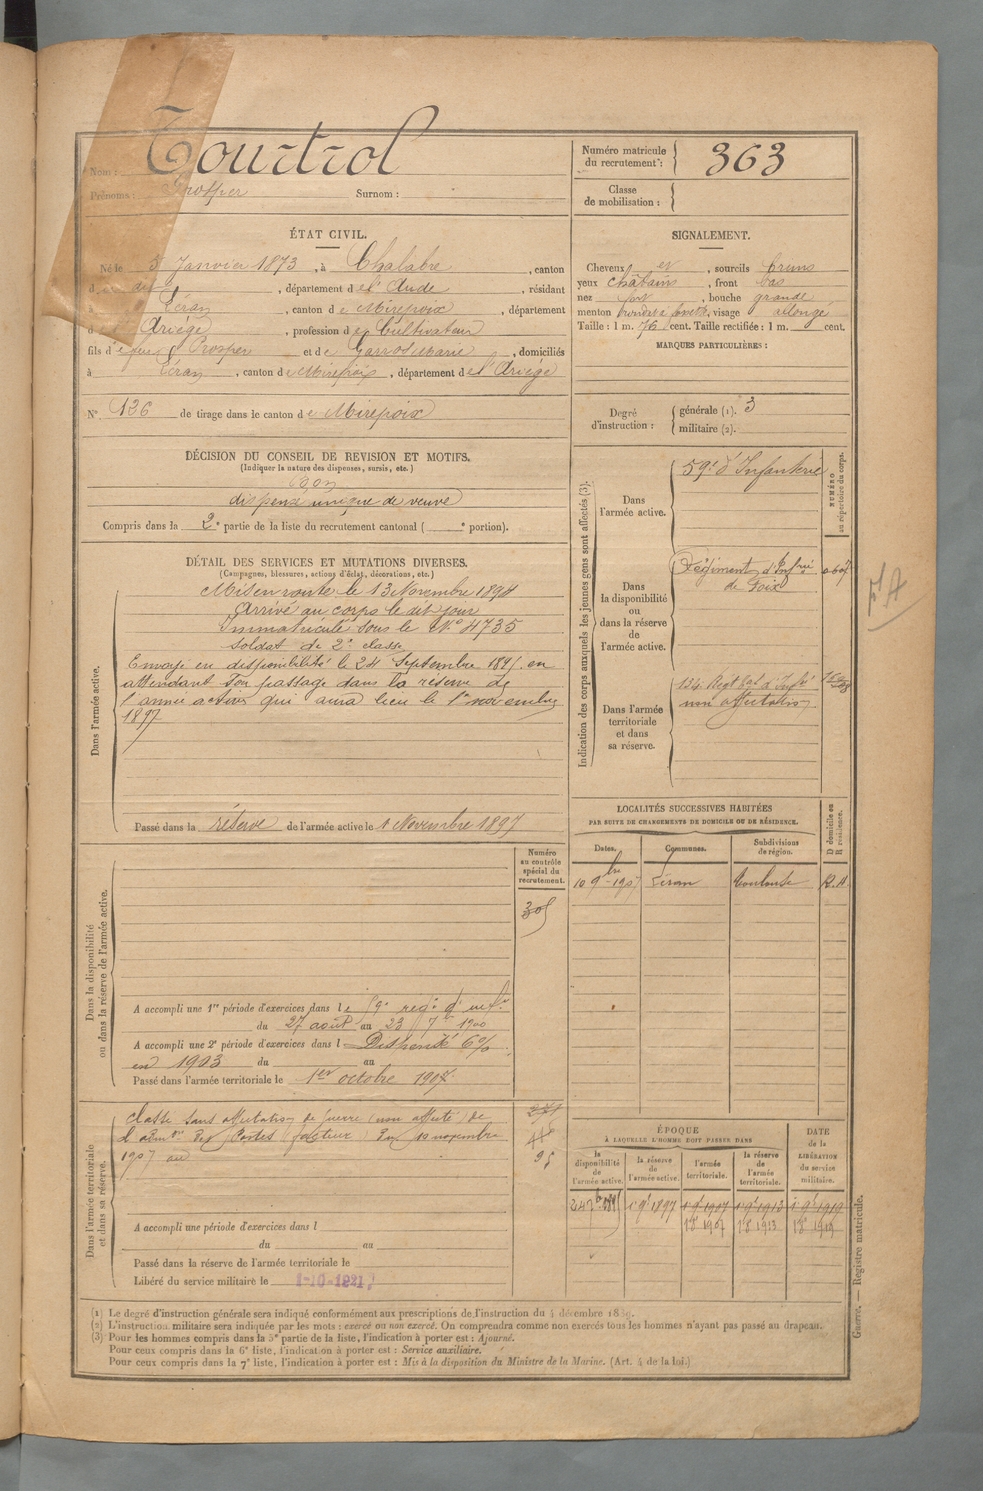 Nom : Tourtrol
Prénoms : Prosper Surnom :
Numéro matricule du recrutement : 363
Classe de mobilisation :
ÉTAT CIVIL.
Né le 5 Janvier 1873, à Chalabre, canton
d dud, département de l'Aude, résidant
à Léran, canton de Mirepoix, département
de l'Ariège, profession de Cultivateur
fils d Prosper et de Garros Marie, domiciliés
à Léran, canton de Mirepoix, département de l'Ariège
N° 136 de tirage dans le canton de Mirepoix
SIGNALEMENT.
Cheveux et, sourcils bruns
yeux châtains, front bas
nez fort, bouche grande
menton rond, visage allongé
Taille : 1 m. 76 cent. Taille rectifiée : 1 m. cent.
MARQUES PARTICULIÈRES :
Degré d'instruction : générale (1). 3
militaire (2).
DÉCISION DU CONSEIL DE REVISION ET MOTIFS.
(Indiquer la nature des dispenses, sursis, etc.)
Bon
dispensé unique de veuve
Compris dans la 2e partie de la liste du recrutement cantonal ( e portion).
DÉTAIL DES SERVICES ET MUTATIONS DIVERSES.
(Campagnes, blessures, actions d'éclat, décorations, etc.)
Dans l'armée active.
Mis en route le 13 Novembre 1894
Arrivé au corps le dit jour
Immatriculé sous le N° 4735
Soldat de 2e classe
Envoyé en disponibilité le 24 Septembre 1895 en
attendant son passage dans la réserve de
l'armée active qui aura lieu le 1er novembre
1897
Passé dans la réserve de l'armée active le 1 Novembre 1897
Indication des corps auxquels les jeunes gens sont affectés (3).
NUMÉRO au répertoire du corps.
Dans l'armée active.
59e d'Infanterie
Dans la disponibilité ou dans la réserve de l'armée active.
Régiment d'Infrie
de Foix
Dans l'armée territoriale et dans sa réserve.
134 Regt tal d'Infie
non affectation
pt A
LOCALITÉS SUCCESSIVES HABITÉES
PAR SUITE DE CHANGEMENTS DE DOMICILE OU DE RÉSIDENCE.
Dates. Communes. Subdivisions de région. D domicile ou R résidence.
10 9bre 1907 Léran Toulouse
Dans la disponibilité ou dans la réserve de l'armée active.
Numéro au contrôle spécial du recrutement.
305
A accompli une 1re période d'exercices dans le 59e regt d'infie
du 27 août au 23 7bre 1900
A accompli une 2e période d'exercices dans l Dispensé 6%
en 1903 du au
Passé dans l'armée territoriale le 1er octobre 1907
Dans l'armée territoriale et dans sa réserve.
Classé sans affectation de guerre (non affecté) de
l'admon des Postes (facteur) du 10 novembre
1907 au
95
A accompli une période d'exercices dans l
du au
Passé dans la réserve de l'armée territoriale le
Libéré du service militaire le 1-10-1921
ÉPOQUE
À LAQUELLE L'HOMME DOIT PASSER DANS
la disponibilité de l'armée active. la réserve de l'armée active. l'armée territoriale. la réserve de l'armée territoriale.
DATE de la LIBÉRATION du service militaire.
24 7bre 1895 1 9bre 1897 1 9bre 1907 1 9bre 1913 1 9bre 1919
1 8bre 1907 1 8bre 1913 1 8bre 1919
(1) Le degré d'instruction générale sera indiqué conformément aux prescriptions de l'instruction du 4 décembre 1889.
(2) L'instruction militaire sera indiquée par les mots : exercé ou non exercé. On comprendra comme non exercés tous les hommes n'ayant pas passé au drapeau.
(3) Pour les hommes compris dans la 5e partie de la liste, l'indication à porter est : Ajourné.
Pour ceux compris dans la 6e liste, l'indication à porter est : Service auxiliaire.
Pour ceux compris dans la 7e liste, l'indication à porter est : Mis à la disposition du Ministre de la Marine. (Art. 4 de la loi.)
Guerre. — Registre matricule.